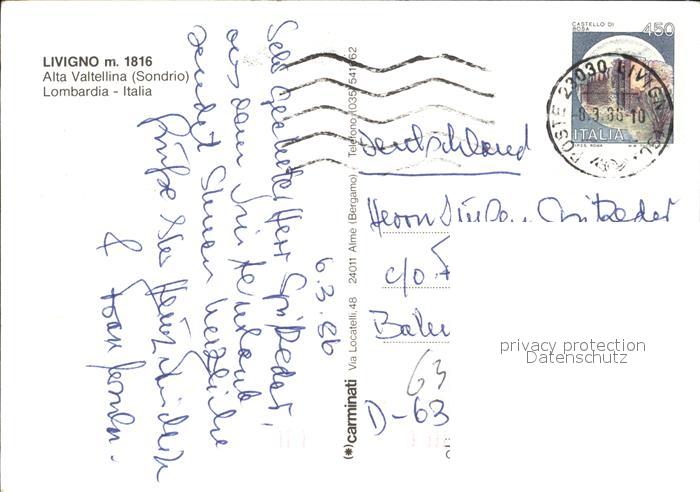 LIVIGNO m. 1816
Alta Valtellina (Sondrio)
Lombardia - Italia
6.3.86
Sehr geehrter Herr
aus dem Winterurlaub
sendet Ihnen herzliche
Grüße Ihr Heinz
& Frau
(*)carminati Via Locatelli, 48 24011 Almé (Bergamo) Telefono (035) 541162
CASTELLO DI
ROSA
450
ITALIA
I.P.Z.S. ROMA
POSTE 23030 LIVIGNO
-8.3.86-10
Deutschland
Herrn
c/o.
D-63
63
privacy protection
Datenschutz